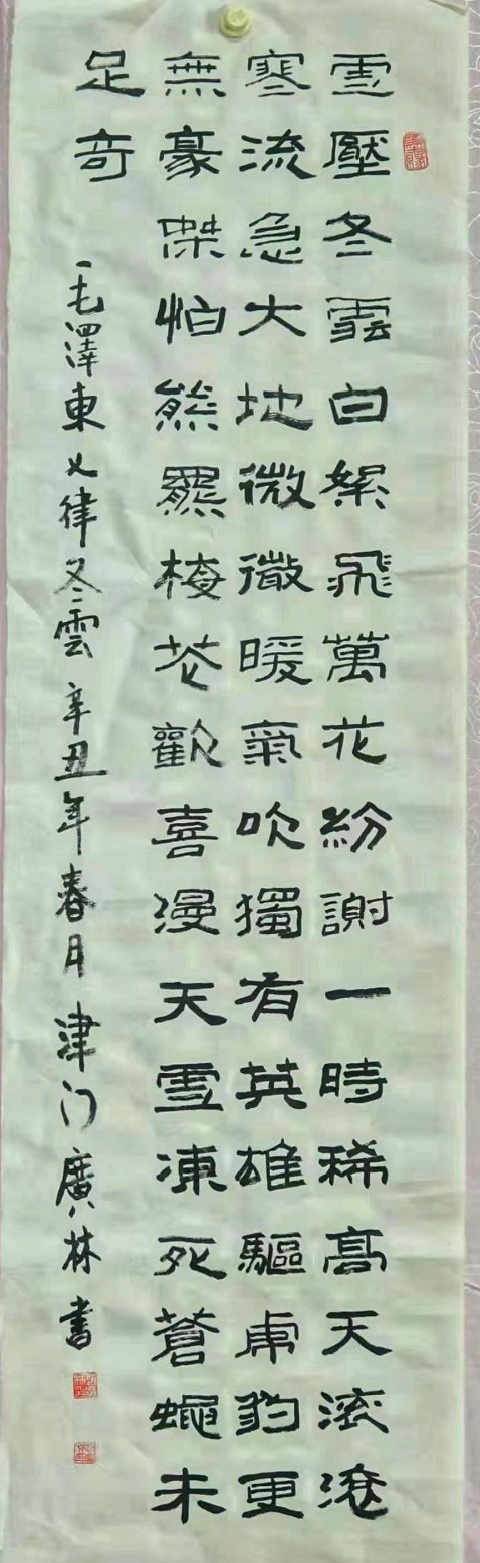 雪壓冬雲白絮飛萬花紛謝一時稀高天滚滚
寒流急大地微微暖氣吹獨有英雄驅虎豹更
無豪傑怕熊羆梅花歡喜漫天雪凍死蒼蠅未
足奇
毛澤東七律冬雲辛丑年春月津门廣林書